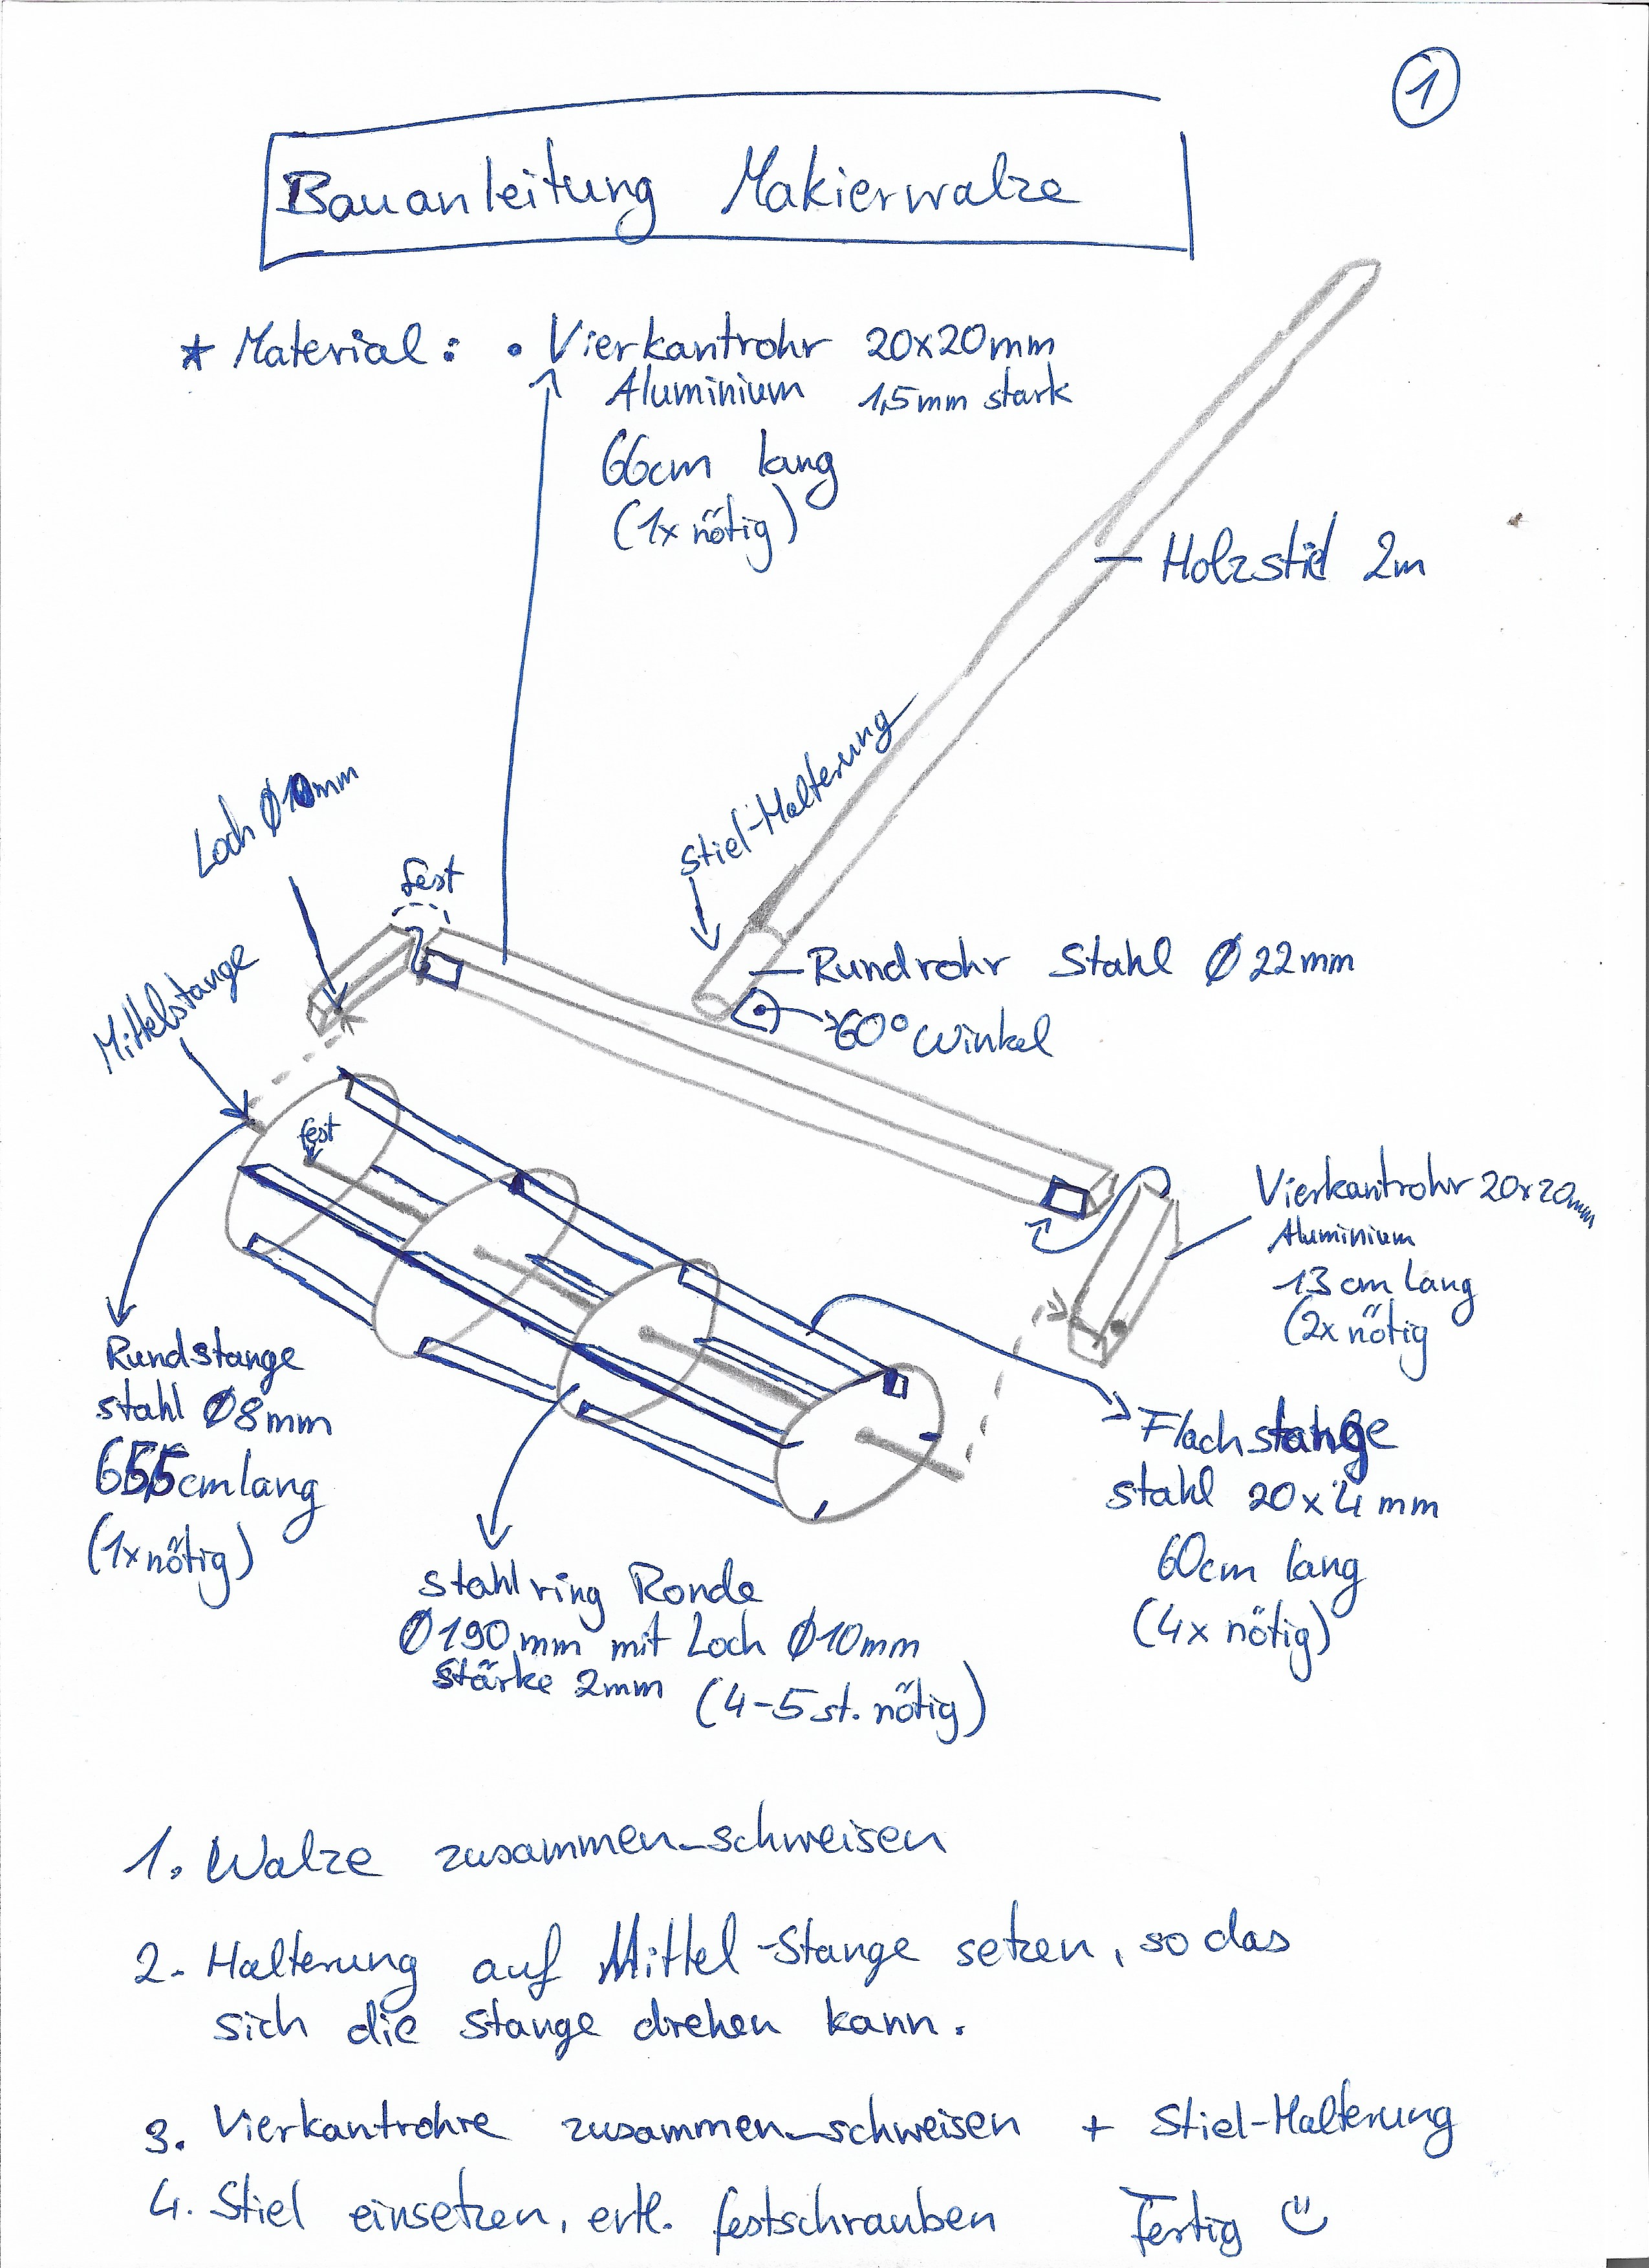 1
Bauanleitung Makierwalze
* Material: • Vierkantrohr 20x20mm
Aluminium 1,5mm stark
66cm lang
(1x nötig)
Holzstiel 2m
Stiel-Halterung
Loch Ø10mm
fest
Mittelstange
Rundrohr Stahl Ø22mm
60° Winkel
fest
Vierkantrohr 20x20mm
Aluminium
13cm lang
(2x nötig
Rundstange
Stahl Ø8mm
cm lang
(1x nötig)
Flachstange
Stahl 20x4mm
60cm lang
(4x nötig)
Stahlring Ronde
Ø190mm mit Loch Ø10mm
Stärke 2mm (4-5st. nötig)
1. Walze zusammen-schweisen
2. Halterung auf Mittel-Stange setzen, so das
sich die Stange drehen kann.
3. Vierkantrohre zusammen-schweisen + Stiel-Halterung
4. Stiel einsetzen, evtl. festschrauben Fertig ☺